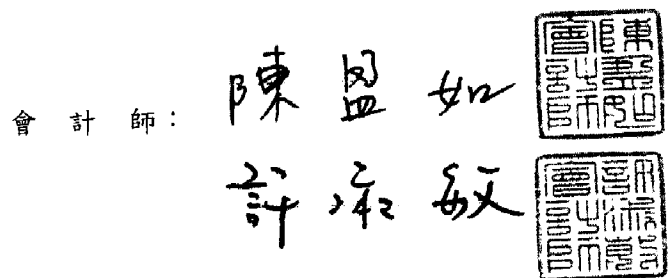 會計師：陳盈如
許淑敏